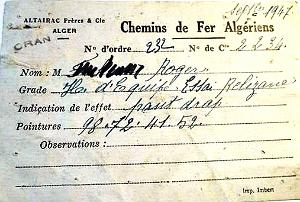 Septbre 1947
ALTAIRAC Frères & Cie
ALGER
ORAN
Chemins de Fer Algériens
N° d'ordre 232 N° de Cde 2234
Nom : M Roger
Grade d'Equipe Essa Relizane
Indication de l'effet pant drap
Pointures 98-72-41-52
Observations :
Imp. Imbert